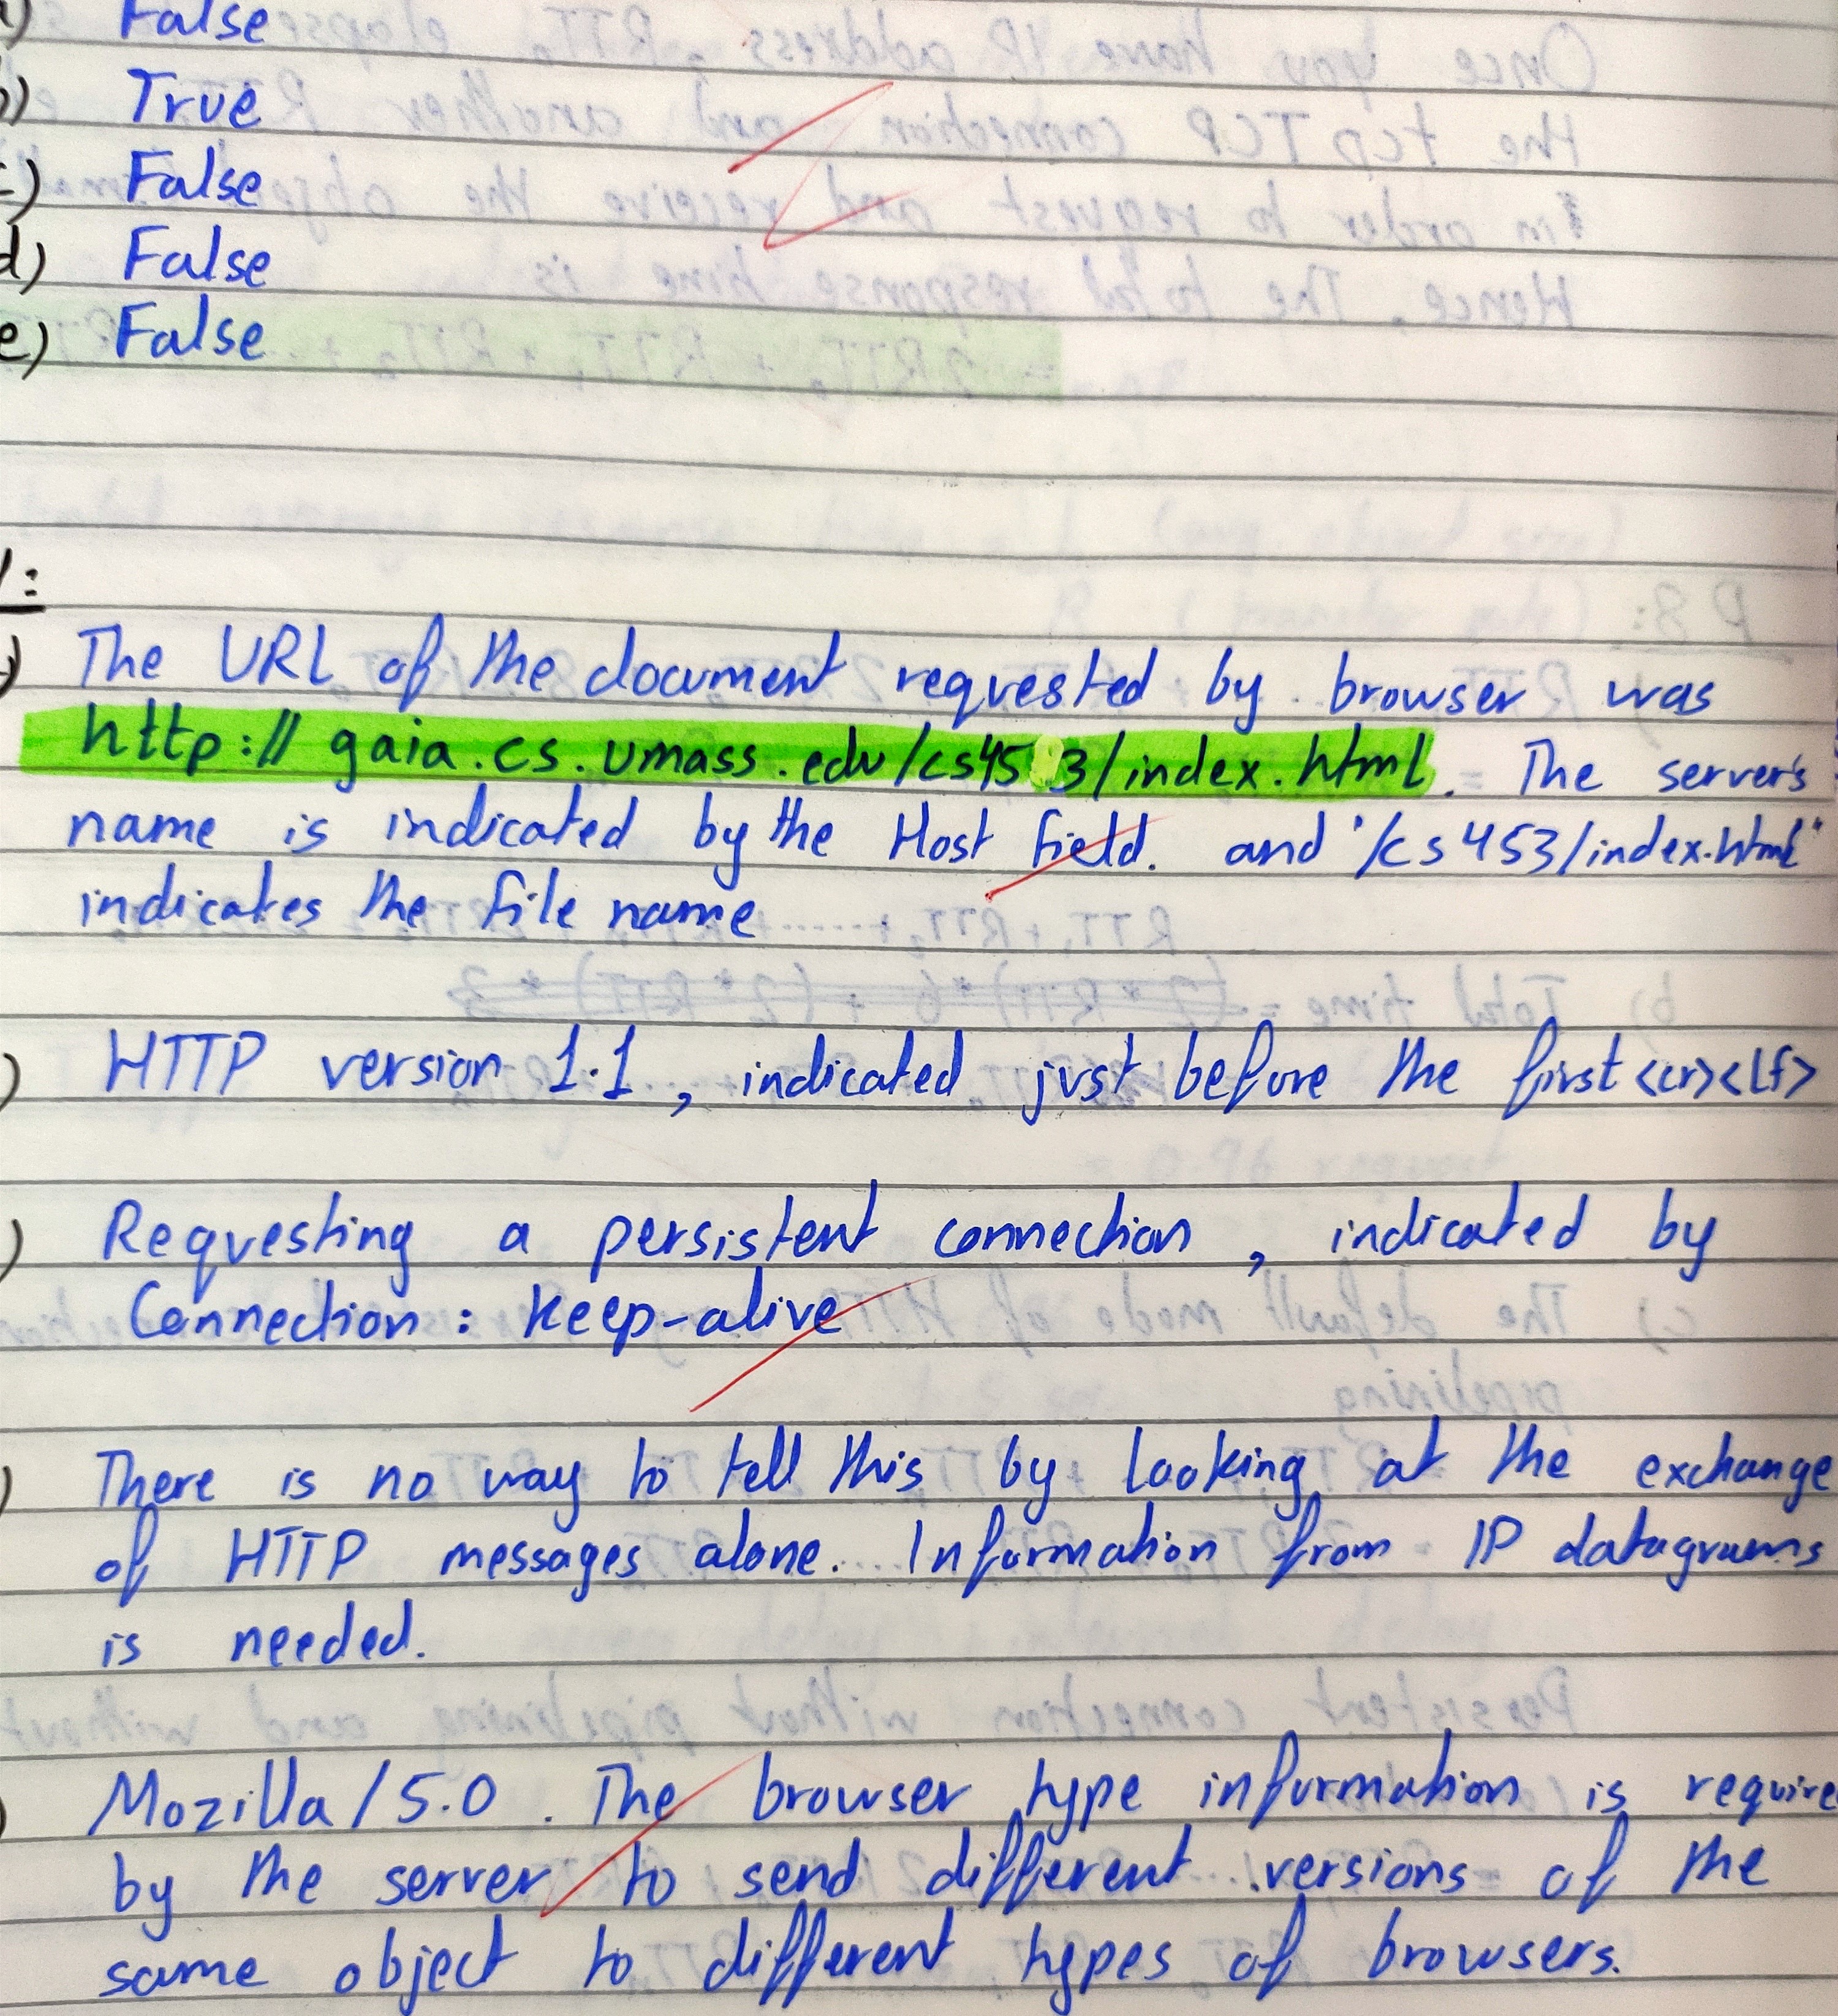 a) False
b) True
c) False
d) False
e) False
:
a) The URL of the document requested by browser was
http://gaia.cs.umass.edu/cs453/index.html. The server's
name is indicated by the Host field. and '/cs453/index.html'
indicates the file name
) HTTP version 1.1, indicated just before the first <cr><lf>
) Requesting a persistent connection, indicated by
Connection: keep-alive
) There is no way to tell this by looking at the exchange
of HTTP messages alone. Information from IP datagrams
is needed.
) Mozilla/5.0. The browser type information is require
by the server to send different versions of the
same object to different types of browsers.